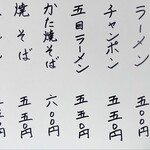 ラーメン 五〇〇円
チャンポン 五五〇円
五目ラーメン 五五〇円
かた焼そば 六〇〇円
焼そば